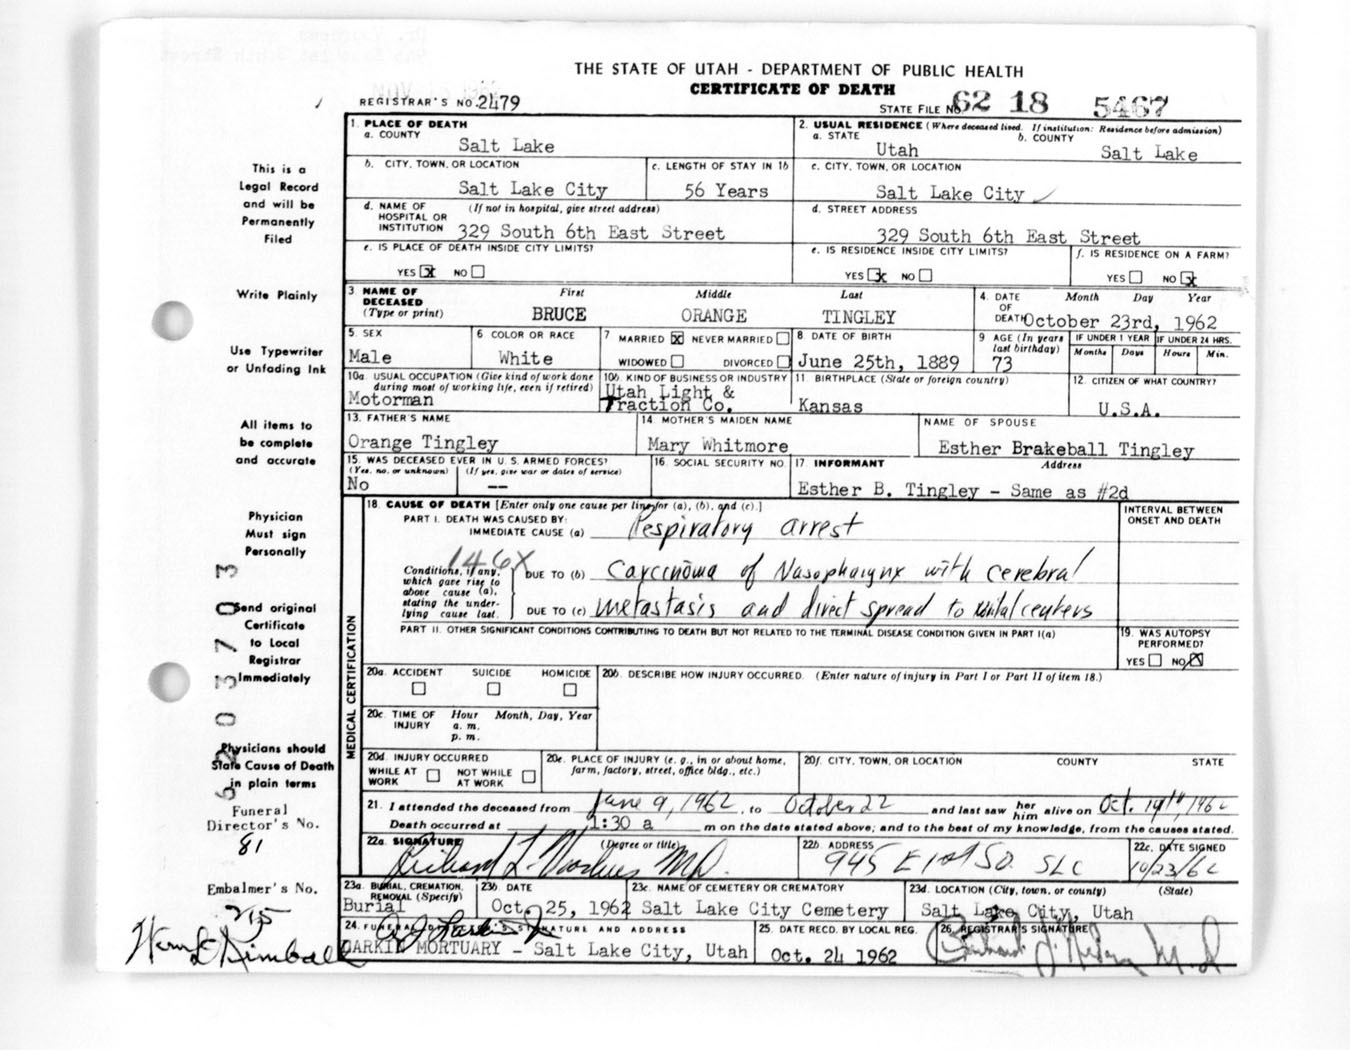 THE STATE OF UTAH - DEPARTMENT OF PUBLIC HEALTH
CERTIFICATE OF DEATH
REGISTRAR'S NO. 2479
STATE FILE NO. 62 18 5467
1. PLACE OF DEATH
a. COUNTY
Salt Lake
2. USUAL RESIDENCE (Where deceased lived. If institution: Residence before admission)
a. STATE
b. COUNTY
Utah
Salt Lake
b. CITY, TOWN, OR LOCATION
Salt Lake City
c. LENGTH OF STAY IN 1b
56 Years
c. CITY, TOWN, OR LOCATION
Salt Lake City
d. NAME OF HOSPITAL OR INSTITUTION
(If not in hospital, give street address)
329 South 6th East Street
d. STREET ADDRESS
329 South 6th East Street
e. IS PLACE OF DEATH INSIDE CITY LIMITS?
YES x NO
e. IS RESIDENCE INSIDE CITY LIMITS?
YES x NO
f. IS RESIDENCE ON A FARM?
YES NO x
3. NAME OF DECEASED (Type or print)
First Middle Last
BRUCE ORANGE TINGLEY
4. DATE OF DEATH
Month Day Year
October 23rd, 1962
5. SEX
Male
6 COLOR OR RACE
White
7 MARRIED x NEVER MARRIED
WIDOWED DIVORCED
8. DATE OF BIRTH
June 25th, 1889
9 AGE (In years last birthday)
73
IF UNDER 1 YEAR
Months Days
IF UNDER 24 HRS.
Hours Min.
10a. USUAL OCCUPATION (Give kind of work done during most of working life, even if retired)
Motorman
10b. KIND OF BUSINESS OR INDUSTRY
Utah Light &
Traction Co.
11. BIRTHPLACE (State or foreign country)
Kansas
12. CITIZEN OF WHAT COUNTRY?
U.S.A.
13. FATHER'S NAME
Orange Tingley
14. MOTHER'S MAIDEN NAME
Mary Whitmore
NAME OF SPOUSE
Esther Brakeball Tingley
15. WAS DECEASED EVER IN U.S. ARMED FORCES?
(Yes, no, or unknown) (If yes, give war or dates of service)
No --
16. SOCIAL SECURITY NO.
17. INFORMANT Address
Esther B. Tingley - Same as #2d
MEDICAL CERTIFICATION
18. CAUSE OF DEATH [Enter only one cause per line for (a), (b), and (c).]
INTERVAL BETWEEN ONSET AND DEATH
PART I. DEATH WAS CAUSED BY:
IMMEDIATE CAUSE (a) Respiratory arrest
146X
Conditions, if any, which gave rise to above cause (a), stating the underlying cause last.
DUE TO (b) Carcinoma of Nasopharynx with cerebral
DUE TO (c) metastasis and direct spread to vital centers
PART II. OTHER SIGNIFICANT CONDITIONS CONTRIBUTING TO DEATH BUT NOT RELATED TO THE TERMINAL DISEASE CONDITION GIVEN IN PART I(a)
19. WAS AUTOPSY PERFORMED?
YES NO x
20a. ACCIDENT SUICIDE HOMICIDE
20b. DESCRIBE HOW INJURY OCCURRED. (Enter nature of injury in Part I or Part II of item 18.)
20c. TIME OF INJURY
Hour Month, Day, Year
a. m.
p. m.
20d. INJURY OCCURRED
WHILE AT WORK NOT WHILE AT WORK
20e. PLACE OF INJURY (e. g., in or about home, farm, factory, street, office bldg., etc.)
20f. CITY, TOWN, OR LOCATION COUNTY STATE
21. I attended the deceased from June 9, 1962, to October 22 and last saw her him alive on Oct. 19th, 1962
Death occurred at 1:30 a m on the date stated above; and to the best of my knowledge, from the causes stated.
22a. SIGNATURE (Degree or title)
Richard L. M.D.
22b. ADDRESS
945 E 1st So. SLC
22c. DATE SIGNED
10/23/62
23a. BURIAL, CREMATION, REMOVAL (Specify)
Burial
23b. DATE
Oct. 25, 1962
23c. NAME OF CEMETERY OR CREMATORY
Salt Lake City Cemetery
23d. LOCATION (City, town, or county) (State)
Salt Lake City, Utah
24. FUNERAL DIRECTOR'S SIGNATURE AND ADDRESS
LARKIN MORTUARY - Salt Lake City, Utah
25. DATE RECD. BY LOCAL REG.
Oct. 24 1962
26. REGISTRAR'S SIGNATURE
M.D.
This is a
Legal Record
and will be
Permanently
Filed
Write Plainly
Use Typewriter
or Unfading Ink
All items to
be complete
and accurate
Physician
Must sign
Personally
Send original
Certificate
to Local
Registrar
Immediately
Physicians should
State Cause of Death
in plain terms
Funeral
Director's No.
81
Embalmer's No.
215
Kimball